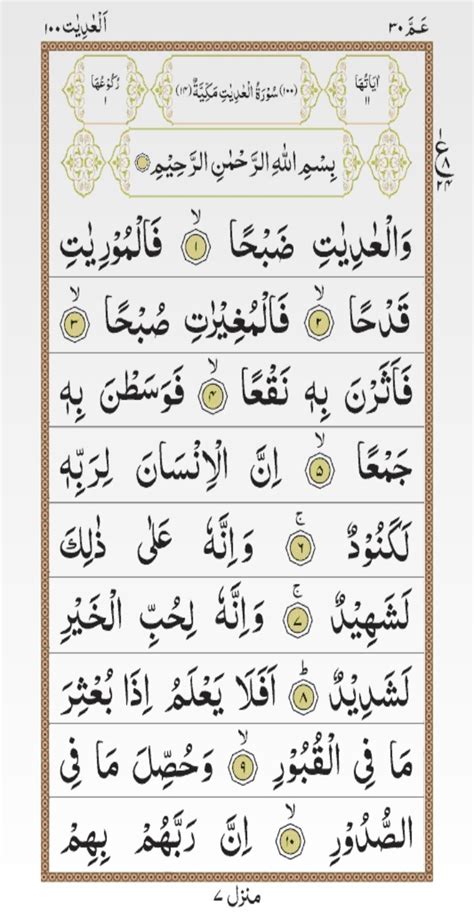 عَمَّ ۳۰ اَلْعٰدِیٰت ۱۰۰
اٰیَاتُهَا ۱۱ (۱۰۰) سُوْرَةُ الْعٰدِیٰتِ مَكِّیَّةٌ (۱۴) رُكُوْعُهَا ۱
بِسْمِ اللّٰهِ الرَّحْمٰنِ الرَّحِیْمِ
ع ۸ ۲۴
وَالْعٰدِیٰتِ ضَبْحًا ۙ ۱ فَالْمُوْرِیٰتِ
قَدْحًا ۙ ۲ فَالْمُغِیْرٰتِ صُبْحًا ۙ ۳
فَاَثَرْنَ بِهٖ نَقْعًا ۙ ۴ فَوَسَطْنَ بِهٖ
جَمْعًا ۙ ۵ اِنَّ الْاِنْسَانَ لِرَبِّهٖ
لَكَنُوْدٌ ۚ ۶ وَاِنَّهٗ عَلٰی ذٰلِكَ
لَشَهِیْدٌ ۚ ۷ وَاِنَّهٗ لِحُبِّ الْخَیْرِ
لَشَدِیْدٌ ؕ ۸ اَفَلَا یَعْلَمُ اِذَا بُعْثِرَ
مَا فِی الْقُبُوْرِ ۙ ۹ وَحُصِّلَ مَا فِی
الصُّدُوْرِ ۙ ۱۰ اِنَّ رَبَّهُمْ بِهِمْ
منزل ۷